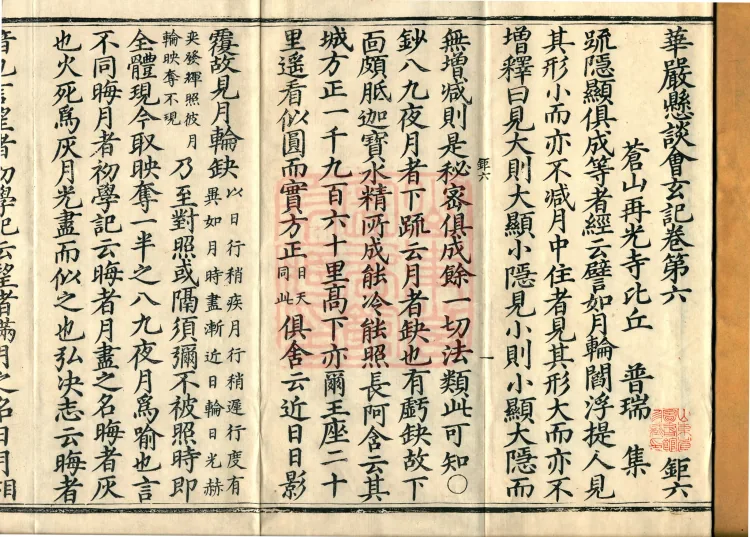 華嚴懸談會玄記卷第六
鉅六
蒼山再光寺比丘 普瑞 集
䟽隱顯俱成等者經云譬如月輪閻浮提人見
其形小而亦不减月中住者見其形大而亦不
增釋曰見大則大顯小隱見小則小顯大隱而
無增减則是秘密俱成餘一切法類此可知○
鉅六
一
鈔八九夜月者下䟽云月者缺也有虧缺故下
面頗胝迦寶水精所成能冷能照長阿含云其
城方正一千九百六十里高下亦爾王座二十
里遥看似圓而實方正日天同此俱舍云近日日影
覆故見月輪缺以日行稍疾月行稍遲行度有異如月時盡漸近日輪日光赫
奕發輝照彼月輪映奪不現乃至對照或隔須彌不被照時即
全體現今取映奪一半之八九夜月爲喻也言
不同晦月者初學記云晦者月盡之名晦者灰
也火死爲灰月光盡而似之也弘决志云晦者
音也言望者初學記云望者滿月之名日月相